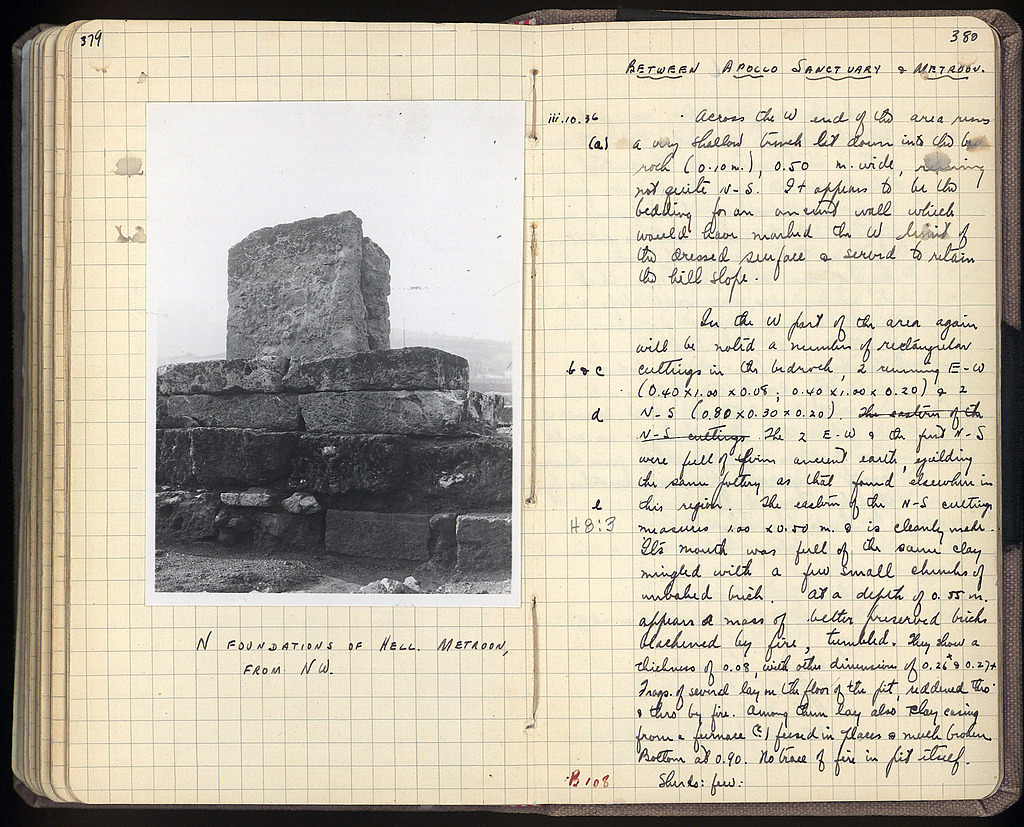 379
N FOUNDATIONS OF HELL. METROON,
FROM NW.
380
BETWEEN APOLLO SANCTUARY & METROON.
iii.10.36
Across the W end of the area runs
(a) a very shallow trench let down into the bed
rock (0.10 m.), 0.50 m. wide, running
not quite N-S. It appears to be the
bedding for an ancient wall which
would have marked the W limit of
the dressed surface & served to retain
the hill slope.
In the W part of the area again
will be noted a number of rectangular
b & c cuttings in the bedrock, 2 running E-W
(0.40 x 1.00 x 0.08; 0.40 x 1.00 x 0.20) & 2
d N-S (0.80 x 0.30 x 0.20). The eastern of the
N-S cuttings The 2 E-W & the first N-S
were full of firm ancient earth, yielding
the same pottery as that found elsewhere in
e this region. The eastern of the N-S cuttings
H8:3 measures 1.00 x 0.50 m. & is cleanly made.
Its mouth was full of the same clay
mingled with a few small chunks of
unbaked brick. At a depth of 0.55 m.
appears a mass of better preserved bricks
blackened by fire, tumbled. They show a
thickness of 0.08, with other dimension of 0.26+ & 0.27+
Frags. of several lay on the floor of the pit, reddened thro
& thro by fire. Among them lay also clay casing
from a furnace (?) fused in places & much broken
Bottom at 0.90. No trace of fire in pit itself.
B 108 Sherds: few: